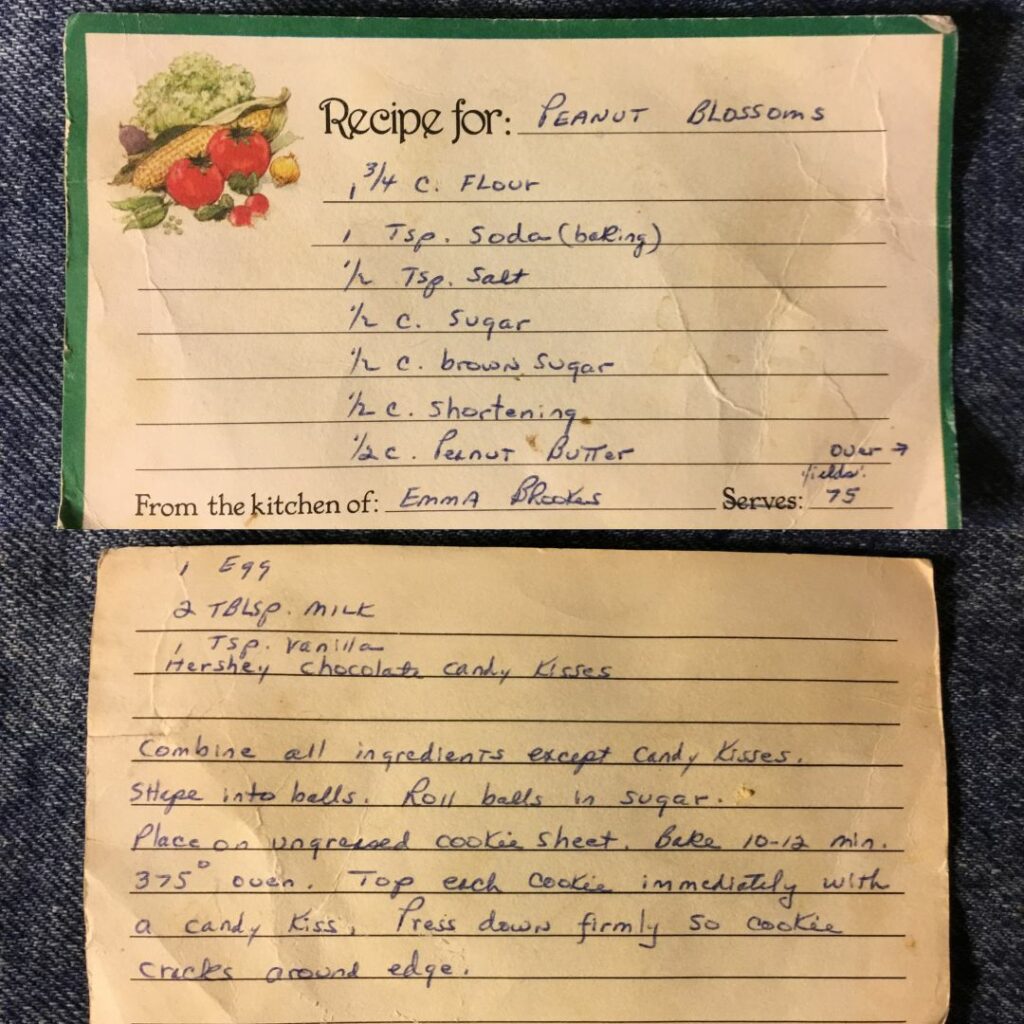 Recipe for: PEANUT BLOSSOMS
1 3/4 C. FLOUR
1 Tsp. Soda (baking)
1/2 Tsp. Salt
1/2 C. Sugar
1/2 C. brown sugar
1/2 C. Shortening
1/2 C. Peanut Butter
over →
yields:
From the kitchen of: EMMA Brookes Serves: 75
1 Egg
2 TBLSP. MILK
1 Tsp. Vanilla
Hershey chocolate candy Kisses
Combine all ingredients except Candy Kisses.
SHape into balls. Roll balls in sugar.
Place on ungreased cookie sheet. Bake 10-12 min.
375° oven. Top each cookie immediately with
a candy Kiss. Press down firmly so cookie
cracks around edge.